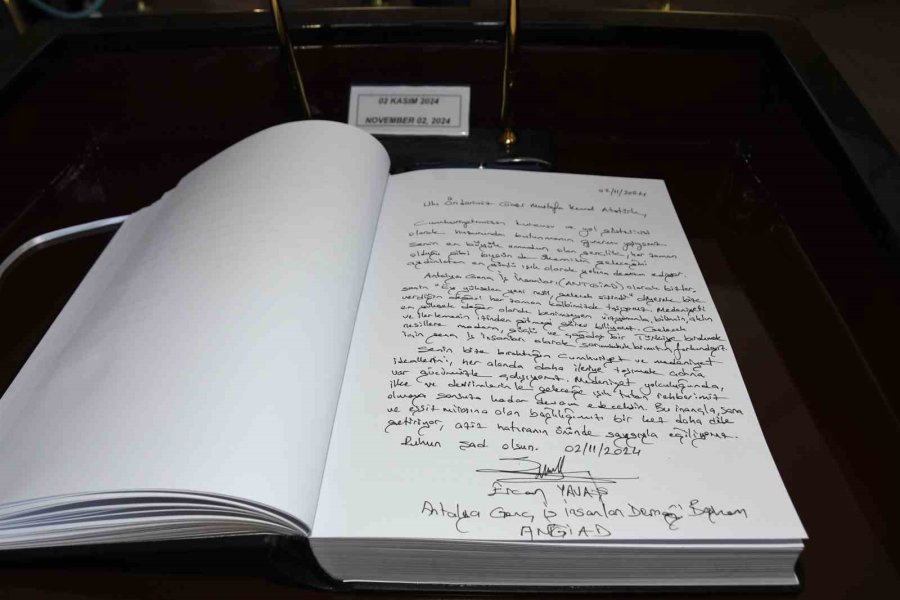 02 KASIM 2024
NOVEMBER 02, 2024
02/11/2024
Ulu Önderimiz Gazi Mustafa Kemal Atatürk,
Cumhuriyetimizin kurucusu ve yol göstericisi
olarak huzurunda bulunmanın gururunu yaşıyoruz.
Senin en büyük umudun olan gençlik, her zaman
olduğu gibi bugün de ülkemizin geleceğini
aydınlatan en güçlü ışık olarak yoluna devam ediyor.
Antalya Genç İş İnsanları (ANTGİAD) olarak bizler,
senin "Ey yükselen yeni nesil, gelecek sizindir" diyerek bize
verdiğin değeri her zaman kalbimizde taşıyoruz. Medeniyeti
en yüksek değer olarak benimseyen vizyonunla, bilimin, aklın
ve ilerlemenin izinden gitmeyi görev biliyoruz. Gelecek
nesillere modern, güçlü ve çağdaş bir Türkiye bırakmak
için genç iş insanları olarak sorumluluklarımızın farkındayız.
Senin bize bıraktığın Cumhuriyet ve medeniyet
ideallerini, her alanda daha ileriye taşımak adına
var gücümüzle çalışıyoruz. Medeniyet yolculuğunda,
ilke ve devrimlerin ile geleceğe ışık tutan rehberimiz
olmaya sonsuza kadar devam edeceksin. Bu inançla, sana
ve eşsiz mirasına olan bağlılığımızı bir kez daha dile
getiriyor, aziz hatıranın önünde saygıyla eğiliyoruz.
Ruhun şad olsun. 02/11/2024
Ercan YAVAŞ
Antalya Genç İş İnsanları Derneği Başkanı
ANTGİAD